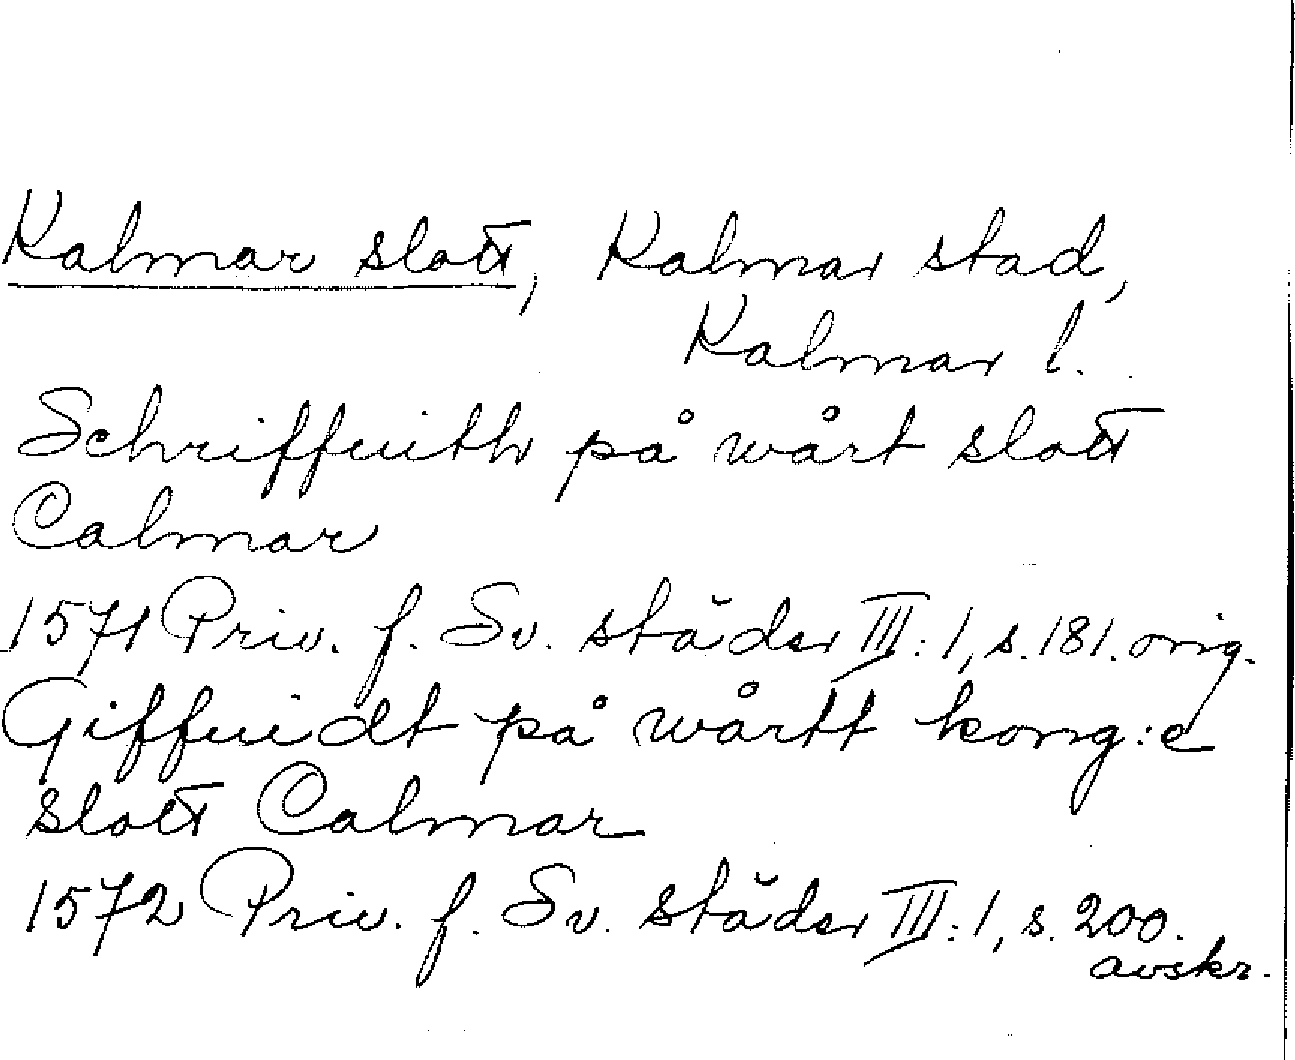 Kalmar slott, Kalmar stad,
Kalmar l.
Schriffuith på wårt slott
Calmar
1571 Priv. f. Sv. städer III:1, s. 181. orig.
Giffuidt på wårtt kong:e
slott Calmar
1572 Priv. f. Sv. städer III:1, s. 200.
avskr.